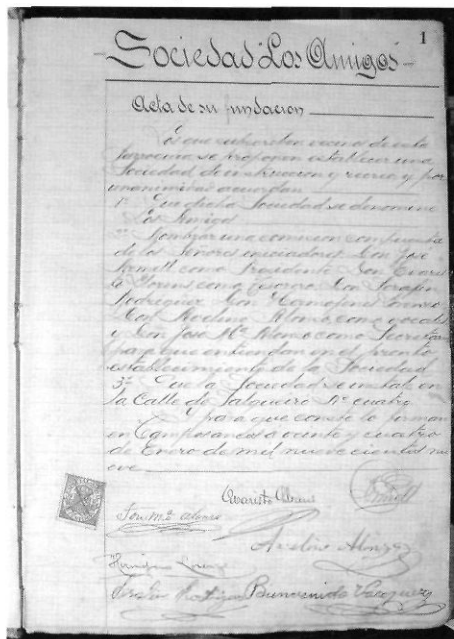 1
Sociedad Los Amigos
Acta de su fundacion
Los que subscriben vecinos de esta
parroquia se proponen establecer una
Sociedad de instruccion y recreo y por
unanimidad acuerdan
1º Que dicha Sociedad se denomine
Los Amigos
2º Nombrar una comision compuesta
de los Señores iniciadores Don José
como Presidente Don Evaris
to como tesorero Don Serafin
Rodriguez Don Hermogenes Lorenzo
Don Avelino Alonso como vocales
y Don José Mª Alonso como Secretario
para que entiendan en el pronto
establecimiento de la Sociedad
3º Que la Sociedad se instale en
la Calle de Salgueiro Nº cuatro
Y para que conste lo firman
en Camposancos á veinte y cuatro
de Enero de mil nueve cientos nu
eve
Evaristo
José Mª Alonso
Avelino Alonso
Lorenzo
Rodriguez Bienvenido Vazquez